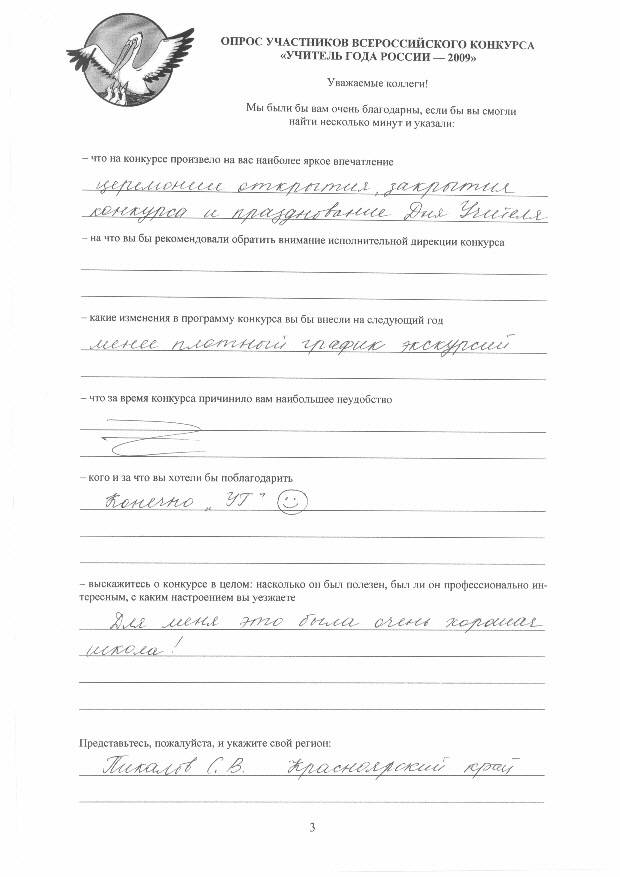 ОПРОС УЧАСТНИКОВ ВСЕРОССИЙСКОГО КОНКУРСА
«УЧИТЕЛЬ ГОДА РОССИИ — 2009»
Уважаемые коллеги!
Мы были бы вам очень благодарны, если бы вы смогли
найти несколько минут и указали:
– что на конкурсе произвело на вас наиболее яркое впечатление
церемонии открытия, закрытия
конкурса и празднование Дня Учителя
– на что вы бы рекомендовали обратить внимание исполнительной дирекции конкурса
– какие изменения в программу конкурса вы бы внесли на следующий год
менее плотный график экскурсий
– что за время конкурса причинило вам наибольшее неудобство
– кого и за что вы хотели бы поблагодарить
Конечно „УГ”
– выскажитесь о конкурсе в целом: насколько он был полезен, был ли он профессионально ин-
тересным, с каким настроением вы уезжаете
Для меня это была очень хорошая
школа!
Представьтесь, пожалуйста, и укажите свой регион:
Пикалов С.В. Красноярский край
3